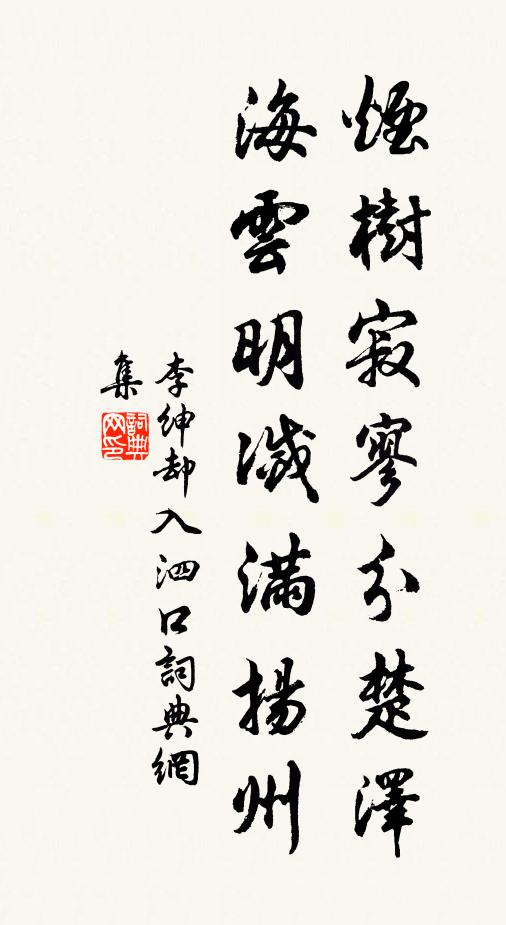 煙樹寂寥分楚澤
海雲明滅滿揚州
李紳却入泗口詞典網
集
詞典網印